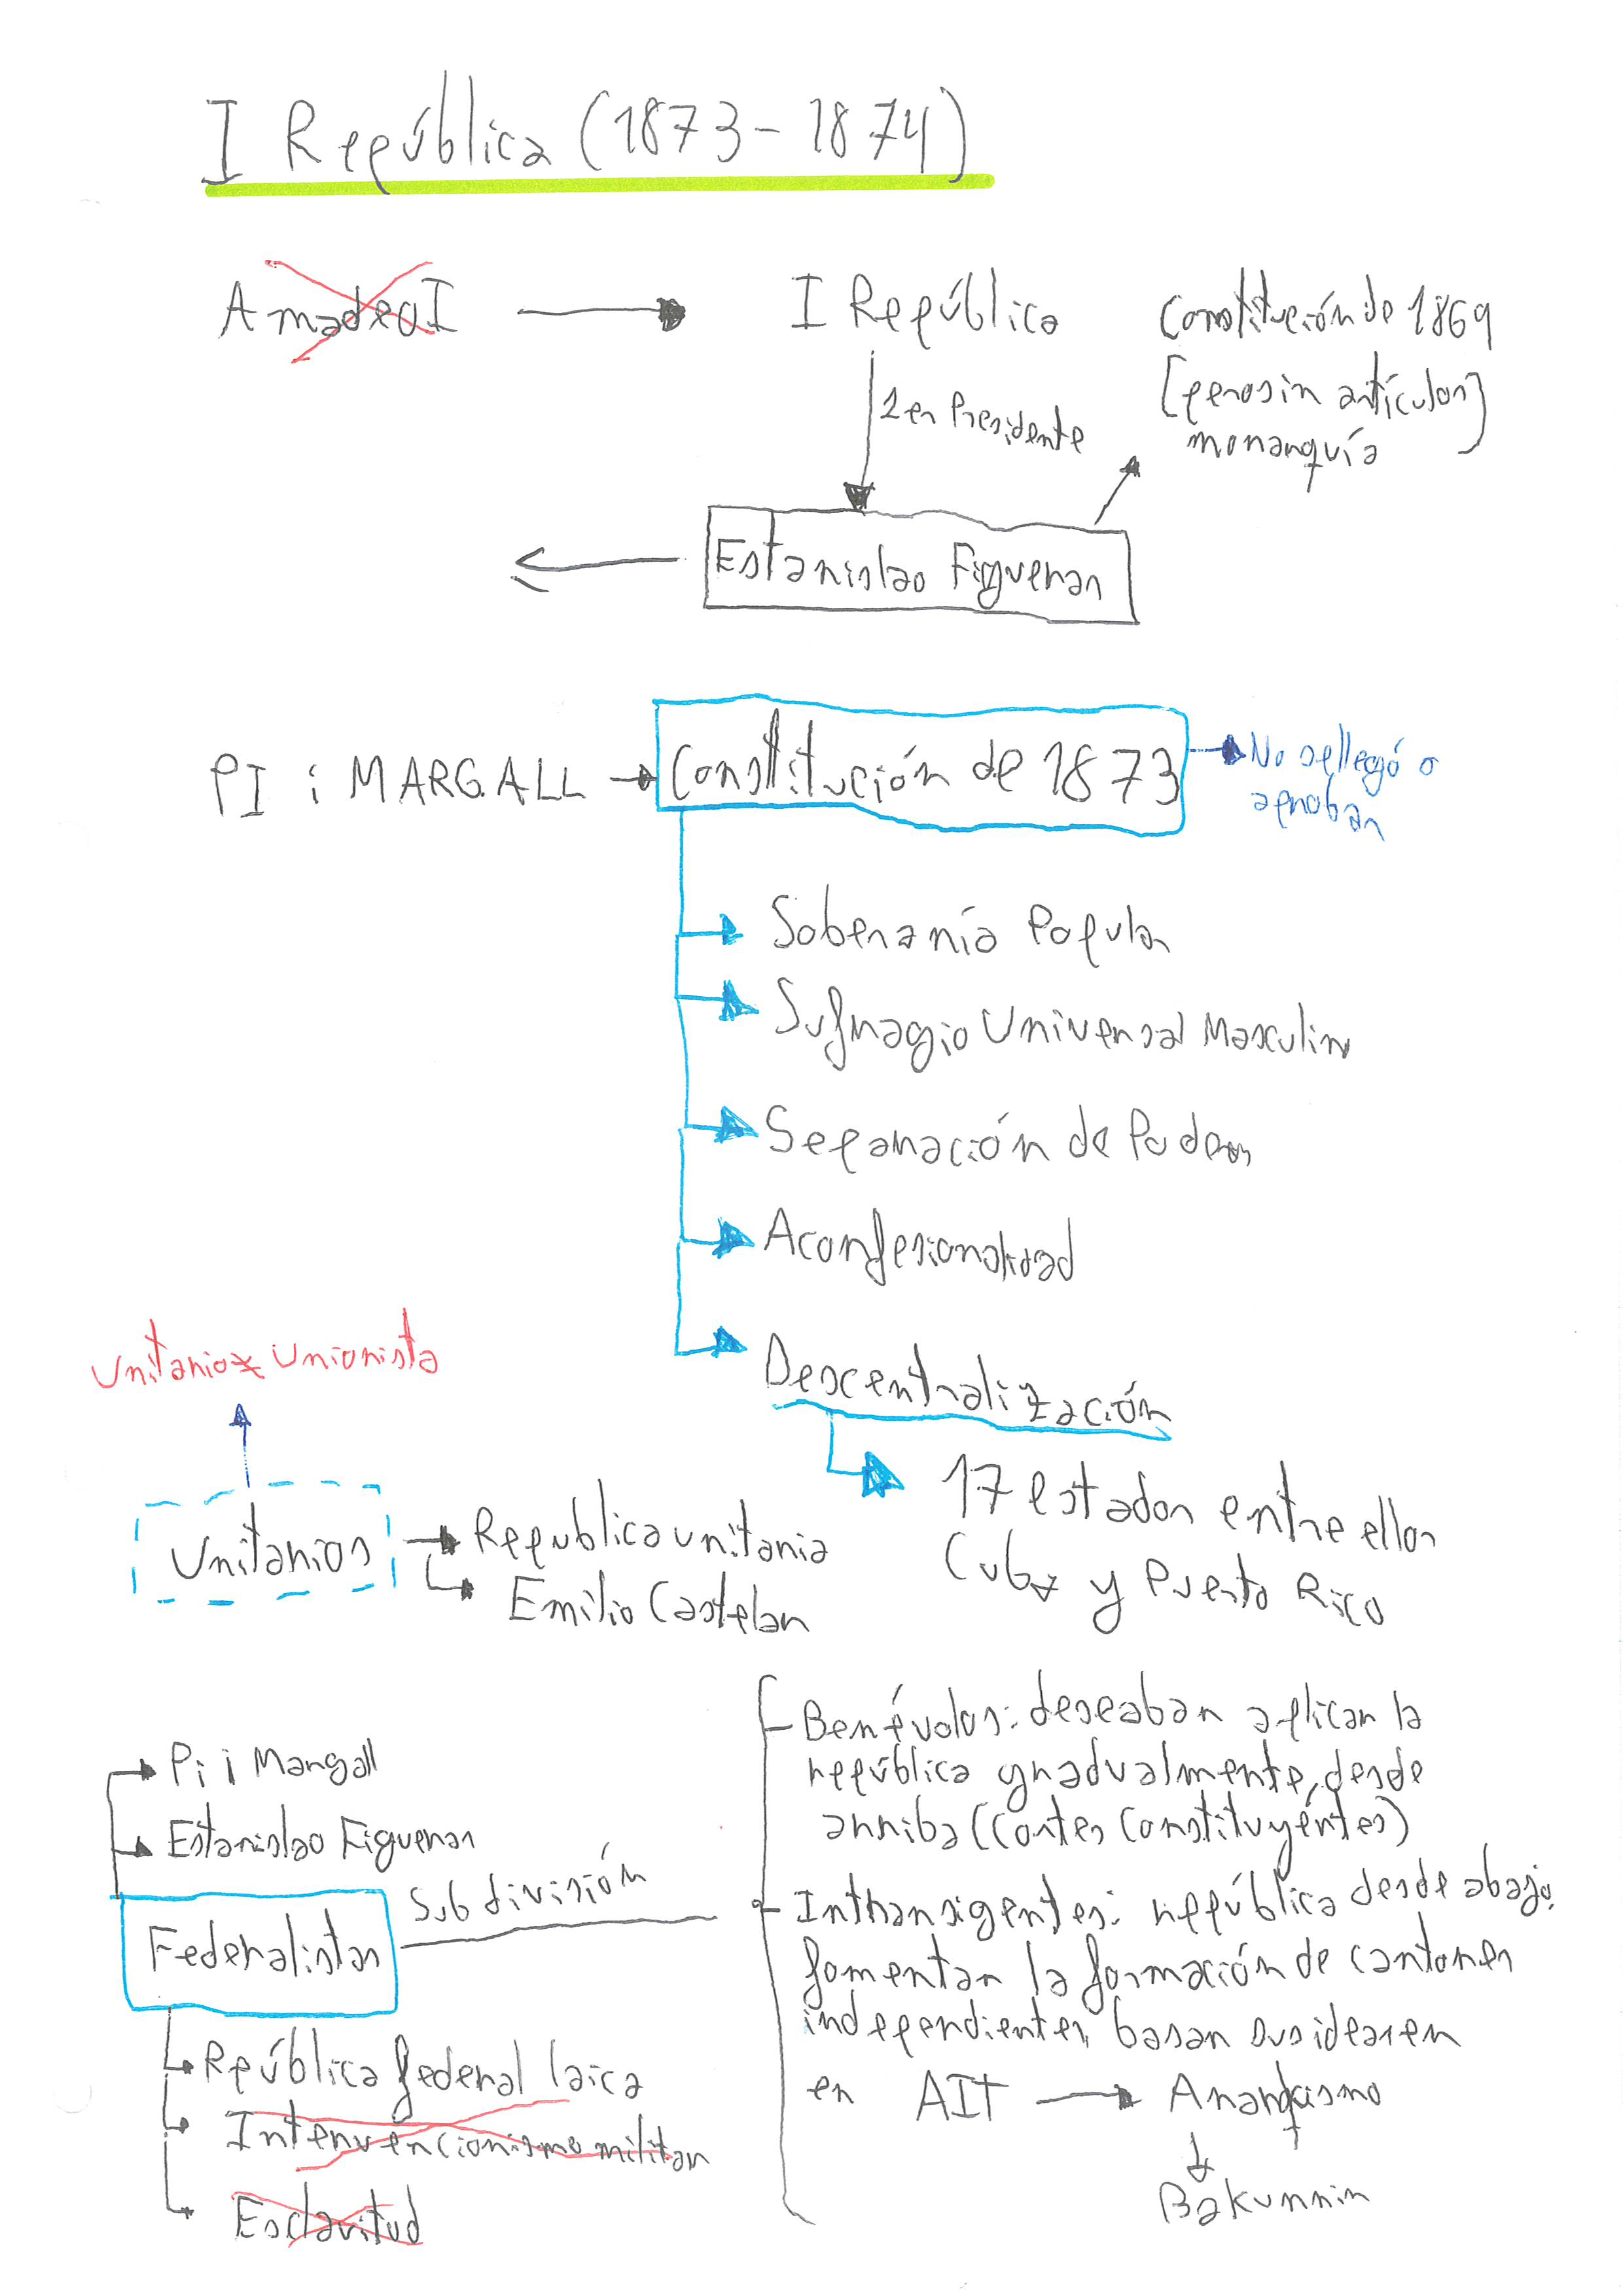 I República (1873-1874)
Amadeo I
I República
Constitución de 1869
[pero sin artículos]
monarquía
1er Presidente
Estanislao Figueras
PI i MARGALL
Constitución de 1873
No se llegó a
aprobar
Soberanía Popular
Sufragio Universal Masculino
Separación de Poderes
Aconfesionalidad
Descentralización
17 estados entre ellos
Cuba y Puerto Rico
Unitario ≠ Unionista
Unitarios
Republica unitaria
Emilio Castelar
Pi i Margall
Estanislao Figueras
Federalistas
Subdivisión
República federal laica
Intervencionismo militar
Esclavitud
Benévolos: deseaban aplicar la
república gradualmente, desde
arriba (Cortes Constituyéntes)
Intransigentes: república desde abajo,
fomentan la formación de cantones
independientes, basan sus ideas en
en AIT
Anarquismo
Bakunnin